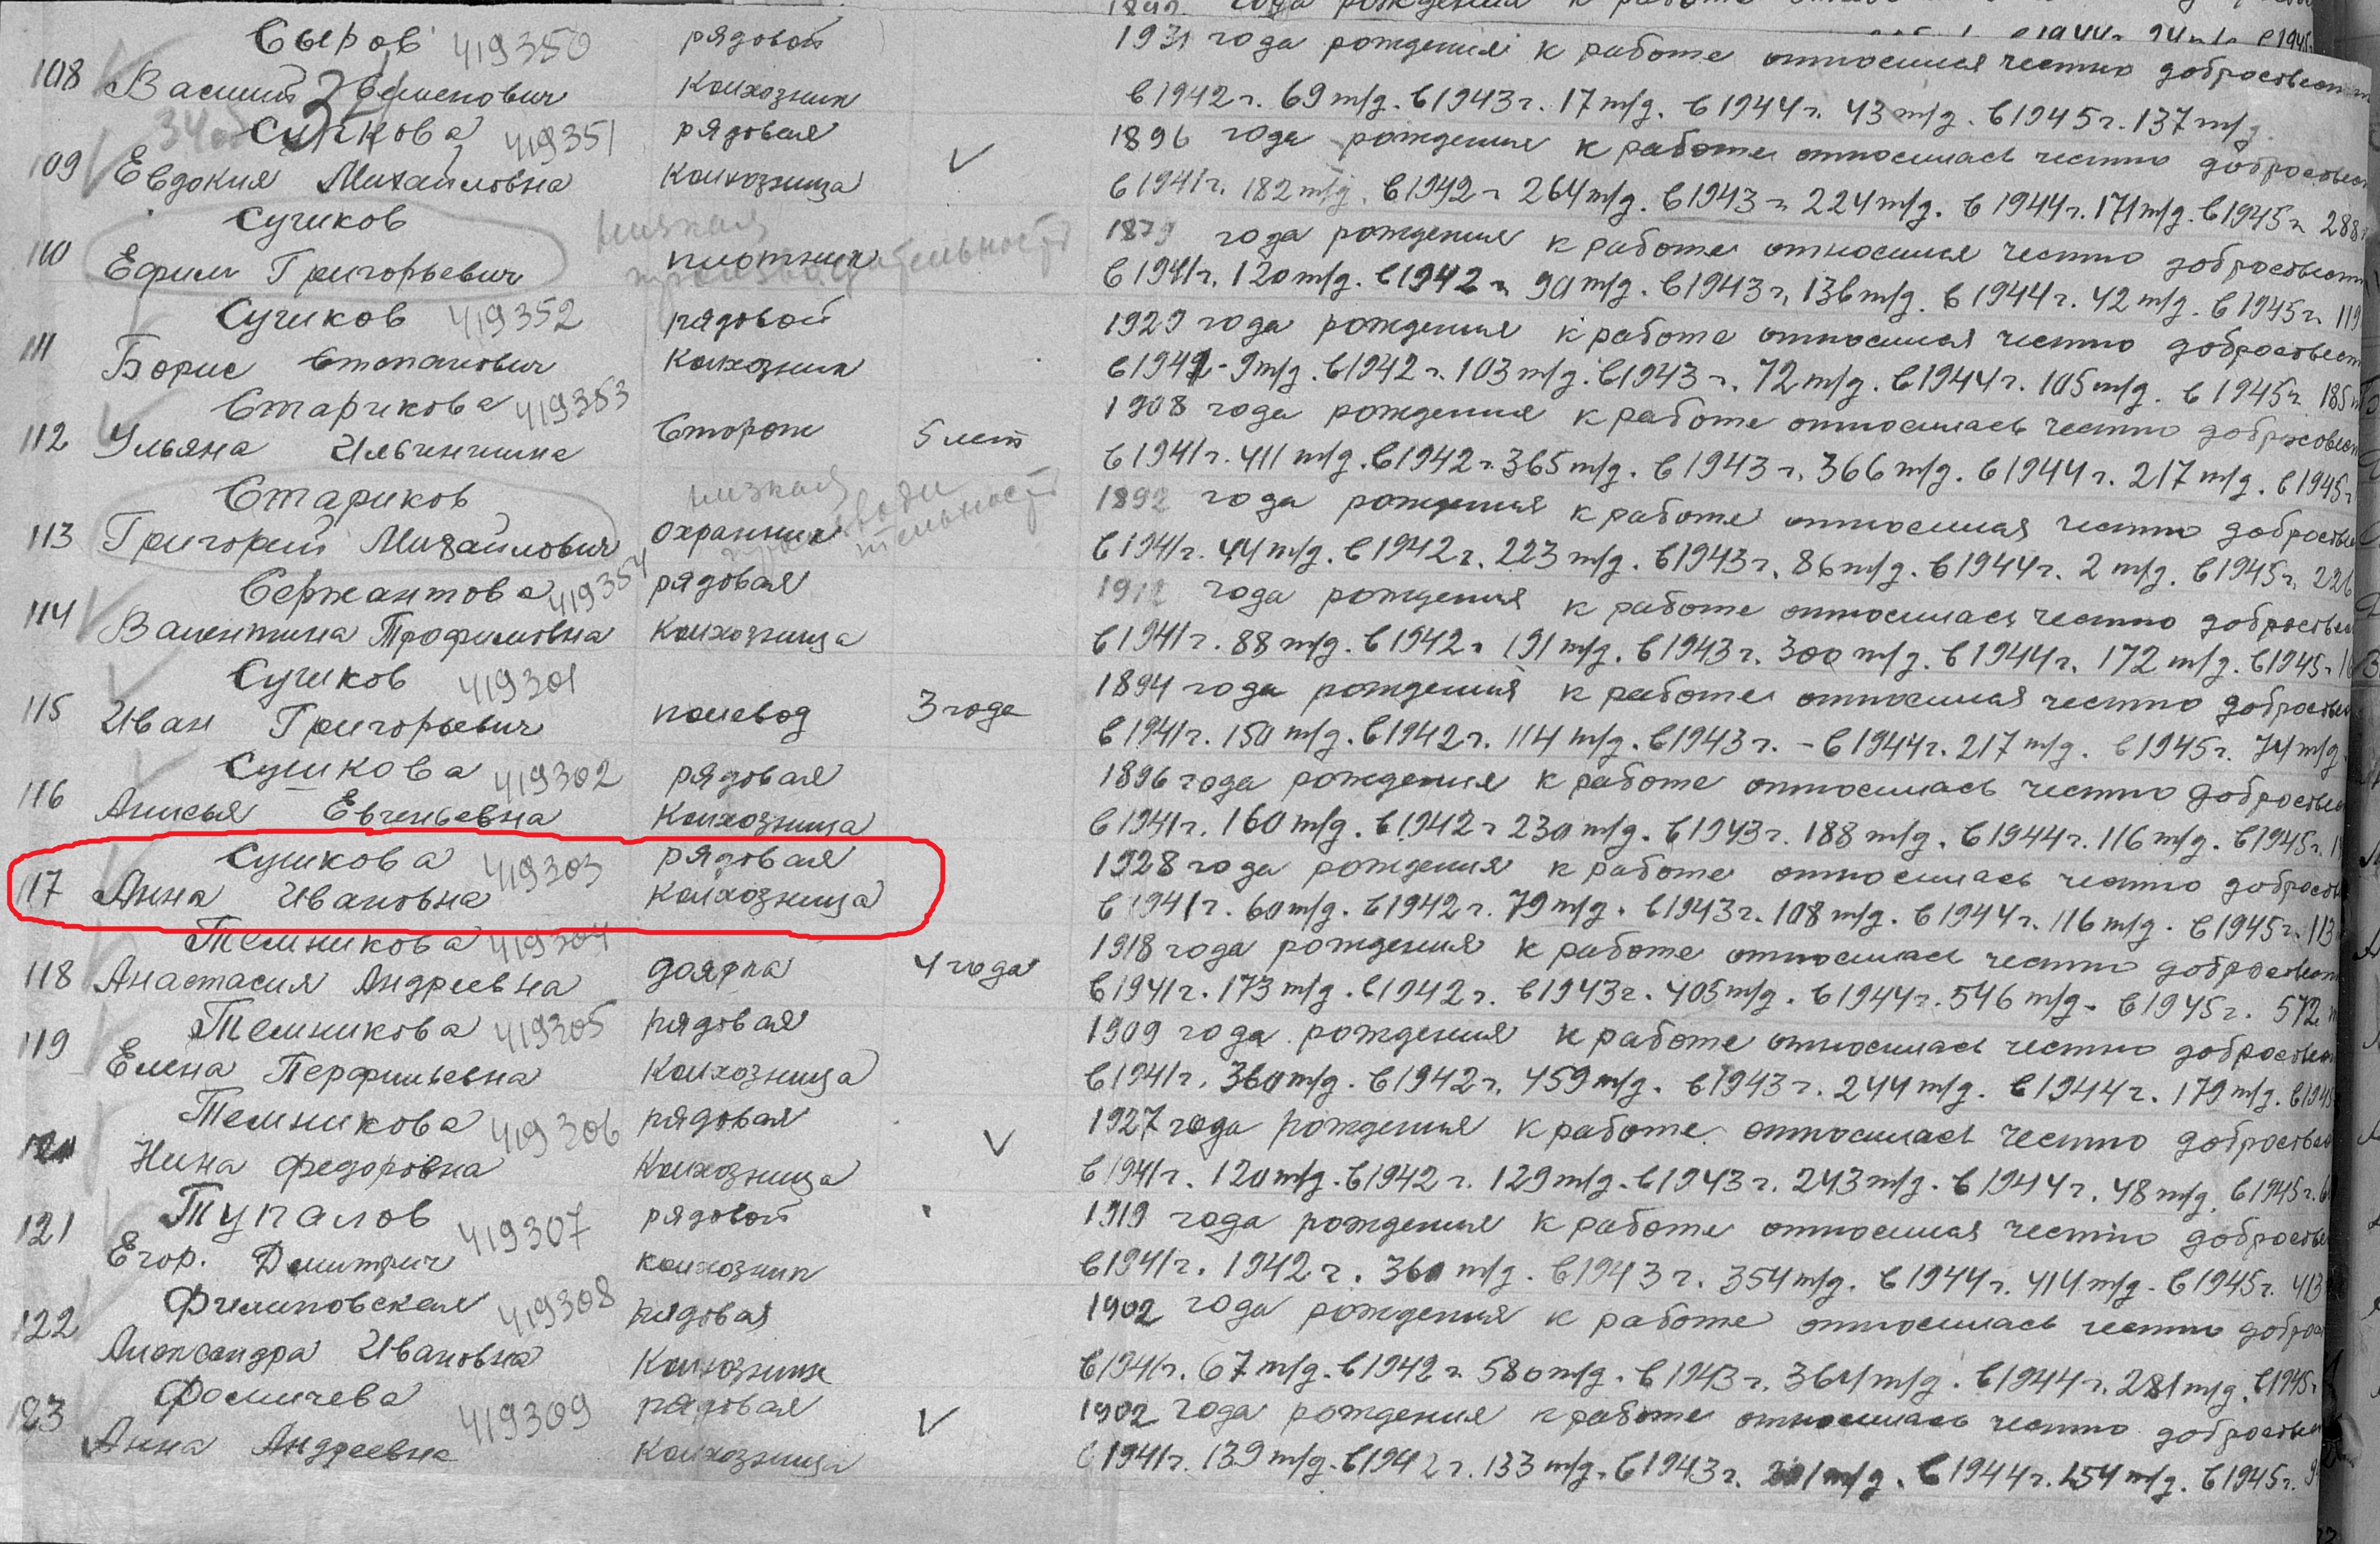 Сыров 419350 рядовой 1931 года рождения к работе относился честно добросовестно
108 Василий Семенович колхозник в 1942 г. 69 т/д. в 1943 г. 17 т/д. в 1944 г. 43 т/д. в 1945 г. 137 т/д.
Сучкова 419351 рядовая 1896 года рождения к работе относилась честно добросовест
109 Евдокия Михайловна колхозница в 1941 г. 182 т/д. в 1942 г. 264 т/д. в 1943 г. 224 т/д. в 1944 г. 171 т/д. в 1945 г. 288
Сучков низкая 1879 года рождения к работе относился честно добросовестно
110 Ефим Григорьевич плотник производительность в 1941 г. 120 т/д. в 1942 г. 90 т/д. в 1943 г. 136 т/д. в 1944 г. 42 т/д. в 1945 г. 119
Сучков 419352 рядовой 1929 года рождения к работе относился честно добросовест
111 Борис Степанович колхозник в 1941 - 9 т/д. в 1942 г. 103 т/д. в 1943 г. 72 т/д. в 1944 г. 105 т/д. в 1945 г. 185
Старикова 419353 1908 года рождения к работе относилась честно добросовест
112 Ульяна Ильинична Сторож 5 лет в 1941 г. 411 т/д. в 1942 г. 365 т/д. в 1943 г. 366 т/д. в 1944 г. 217 т/д. в 1945 г.
Стариков низкая 1892 года рождения к работе относился честно добросовес
113 Григорий Михайлович охранник производительность в 1941 г. 44 т/д. в 1942 г. 223 т/д. в 1943 г. 86 т/д. в 1944 г. 2 т/д. в 1945 г. 226
Сержантова 419354 рядовая 1912 года рождения к работе относилась честно добросовес
114 Валентина Трофимовна колхозница в 1941 г. 88 т/д. в 1942 г. 191 т/д. в 1943 г. 300 т/д. в 1944 г. 172 т/д. в 1945 г.
Сучков 419301 1894 года рождения к работе относился честно добросовес
115 Иван Григорьевич полевод 3 года в 1941 г. 150 т/д. в 1942 г. 114 т/д. в 1943 г. - в 1944 г. 217 т/д. в 1945 г. 74 т/д
Сушкова 419302 рядовая 1896 года рождения к работе относилась честно добросовес
116 Анисья Евгеньевна колхозница в 1941 г. 160 т/д. в 1942 г. 230 т/д. в 1943 г. 188 т/д. в 1944 г. 116 т/д. в 1945 г.
Сушкова 419303 рядовая 1928 года рождения к работе относилась честно добросов
117 Анна Ивановна колхозница в 1941 г. 60 т/д. в 1942 г. 79 т/д. в 1943 г. 108 т/д. в 1944 г. 116 т/д. в 1945 г. 113
Темникова 419304 1918 года рождения к работе относилась честно добросовест
118 Анастасия Андреевна доярка 4 года в 1941 г. 173 т/д. в 1942 г. в 1943 г. 405 т/д. в 1944 г. 546 т/д. в 1945 г. 572
Темникова 419305 рядовая 1909 года рождения к работе относилась честно добросовес
119 Елена Перфильевна колхозница в 1941 г. 360 т/д. в 1942 г. 459 т/д. в 1943 г. 244 т/д. в 1944 г. 179 т/д. в 1945
Темникова 419306 рядовая 1927 года рождения к работе относилась честно добросовес
120 Нина Федоровна колхозница в 1941 г. 120 т/д. в 1942 г. 129 т/д. в 1943 г. 243 т/д. в 1944 г. 48 т/д. в 1945 г.
Тупалов 419307 рядовой 1919 года рождения к работе относился честно добросовес
121 Егор. Дмитрич колхозник в 1941 г. 1942 г. 360 т/д. в 1943 г. 354 т/д. в 1944 г. 414 т/д. в 1945 г. 413
Филиповская 419308 рядовая 1902 года рождения к работе относилась честно добросо
122 Александра Ивановна колхозник в 1941 г. 67 т/д. в 1942 г. 580 т/д. в 1943 г. 364 т/д. в 1944 г. 281 т/д. в 1945 г.
Фомичева 419309 рядовая 1902 года рождения к работе относилась честно добросовес
123 Анна Андреевна колхозница в 1941 г. 139 т/д. в 1942 г. 133 т/д. в 1943 г. 201 т/д. в 1944 г. 154 т/д. в 1945 г.